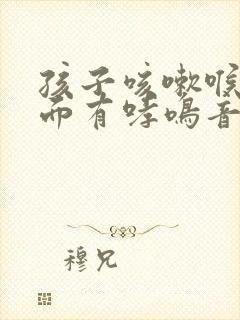 孩子咳嗽喉
而有哮鸣音
穆兄